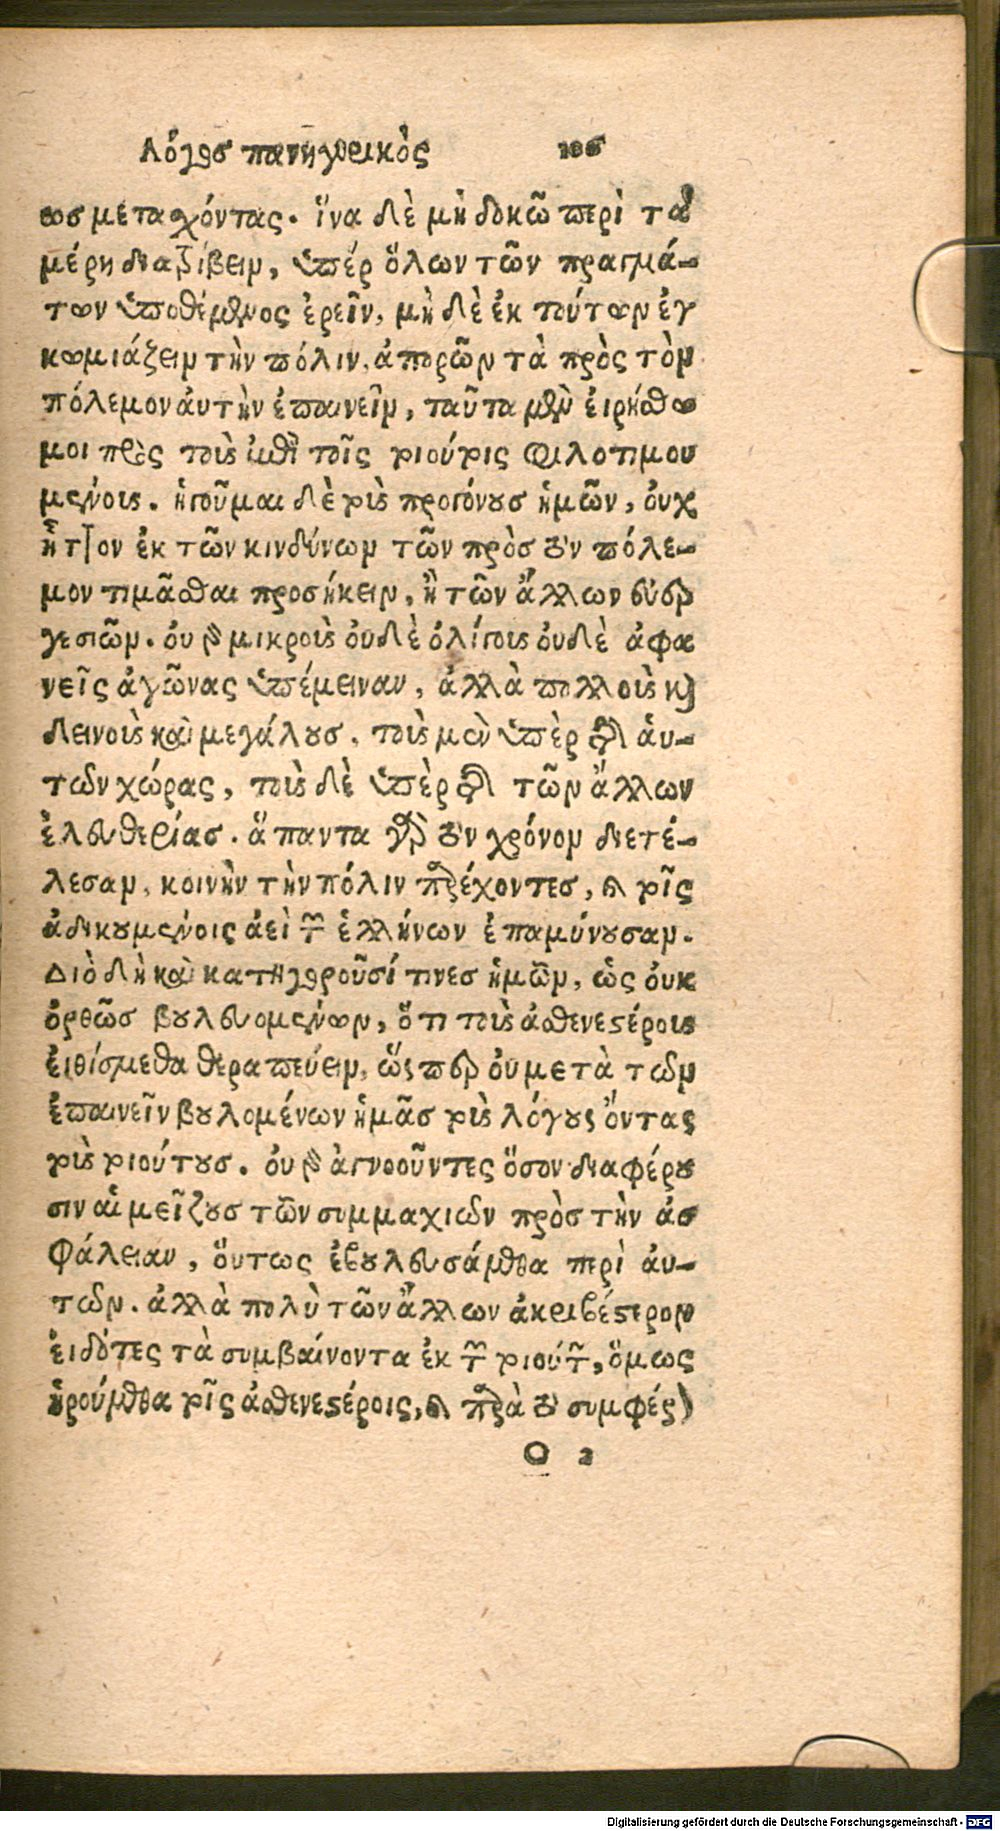 Λόγος πανηγυρικὸς 106
ως μεταχόντας. ἵνα δὲ μὴ δοκῶ περὶ τὰ
μέρη διατρίβειν, ὑπὲρ ὅλων τῶν πραγμά-
των ὑποθέμενος ἐρεῖν, μὴ δὲ ἐκ τούτων ἐγ
κωμιάζειν τὴν πόλιν, ἀπορῶν τὰ πρὸς τὸν
πόλεμον ἀυτὴν ἐπαινεῖν, ταῦτα μὲν ἐιρήσθω
μοι πρὸς τοὺς ἐπὶ τοῖς τοιούτοις φιλοτιμου
μένους. ἡγοῦμαι δὲ τοὺς προγόνους ἡμῶν, ὀυχ
ἧττον ἐκ τῶν κινδύνων τῶν πρὸς τὸν πόλε-
μον τιμᾶσθαι προσήκειν, ἢ τῶν ἄλλων ἐυερ
γεσιῶν. ὀυ γὰρ μικροὺς ὀυδὲ ὀλίγους ὀυδὲ ἀφα
νεῖς ἀγῶνας ὑπέμειναν, ἀλλὰ πολλοὺς καὶ
δεινοὺς καὶ μεγάλους, τοὺς μὲν ὑπὲρ τῆς ἁυ-
τῶν χώρας, τοὺς δὲ ὑπὲρ τῆς τῶν ἄλλων
ἐλευθερίας. ἅπαντα γὰρ τὸν χρόνον διετέ-
λεσαν, κοινὴν τὴν πόλιν παρέχοντες, καὶ τοῖς
ἀδικουμένοις ἀεὶ τῶν ἑλλήνων ἐπαμύνουσαν.
Διὸ δὴ καὶ κατηγοροῦσί τινες ἡμῶν, ὡς ὀυκ
ὀρθῶς βουλευομένων, ὅτι τοὺς ἀσθενεστέρους
ἐιθίσμεθα θεραπεύειν, ὥς περ ὀυ μετὰ τῶν
ἐπαινεῖν βουλομένων ἡμᾶς τοὺς λόγους ὄντας
τοὺς τοιούτους. ὀυ γὰρ ἀγνοοῦντες ὅσον διαφέρου
σιν αἱ μείζους τῶν συμμαχιῶν πρὸς τὴν ἀσ
φάλειαν, ὅυτως ἐβουλευσάμεθα περὶ ἀυ-
τῶν. ἀλλὰ πολὺ τῶν ἄλλων ἀκριβέστερον
ἐιδότες τὰ συμβαίνοντα ἐκ τῶν τοιούτων, ὅμως
ἡρούμεθα τοῖς ἀσθενεστέροις, καὶ παρὰ τὸ συμφέρον
O 2
Digitalisierung gefördert durch die Deutsche Forschungsgemeinschaft - DFG